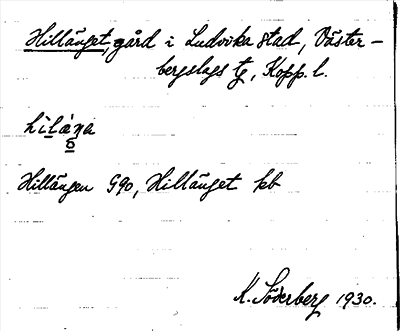 Hillänget, gård i Ludvika stad, Väster-
bergslags tg, Kopp. l.
hìláŋa
ö
Hillängen G90, Hillänget kb
K. Söderberg 1930.